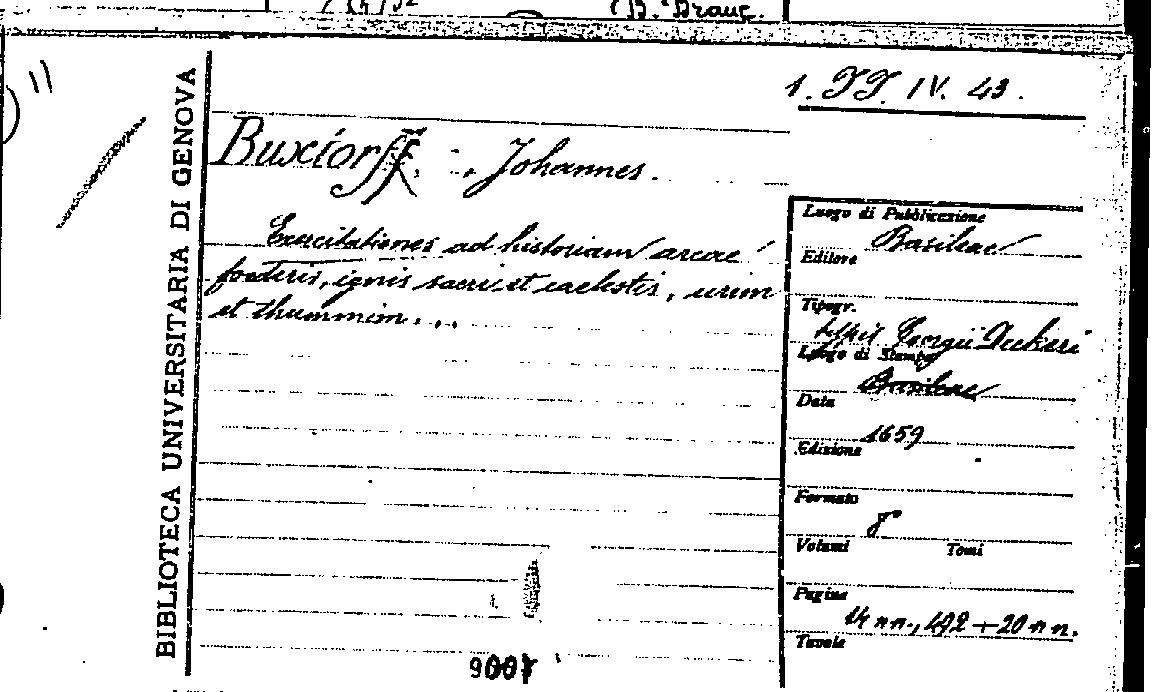 B. Brauç.
1. TT. IV. 43.
BIBLIOTECA UNIVERSITARIA DI GENOVA
Buxtorff, Johannes.
Exercitationes ad historiam arcae
foederis, ignis sacri et caelestis, urim
et thummim...
Luogo di Pubblicazione
Basileae
Editore
Tipogr.
typis Georgii Deckeri
Luogo di Stampa
Basileae
Data
1659
Edizione
Formato
8°
Volumi Tomi
Pagine
14 nn., 492 + 20 nn.
Tavole